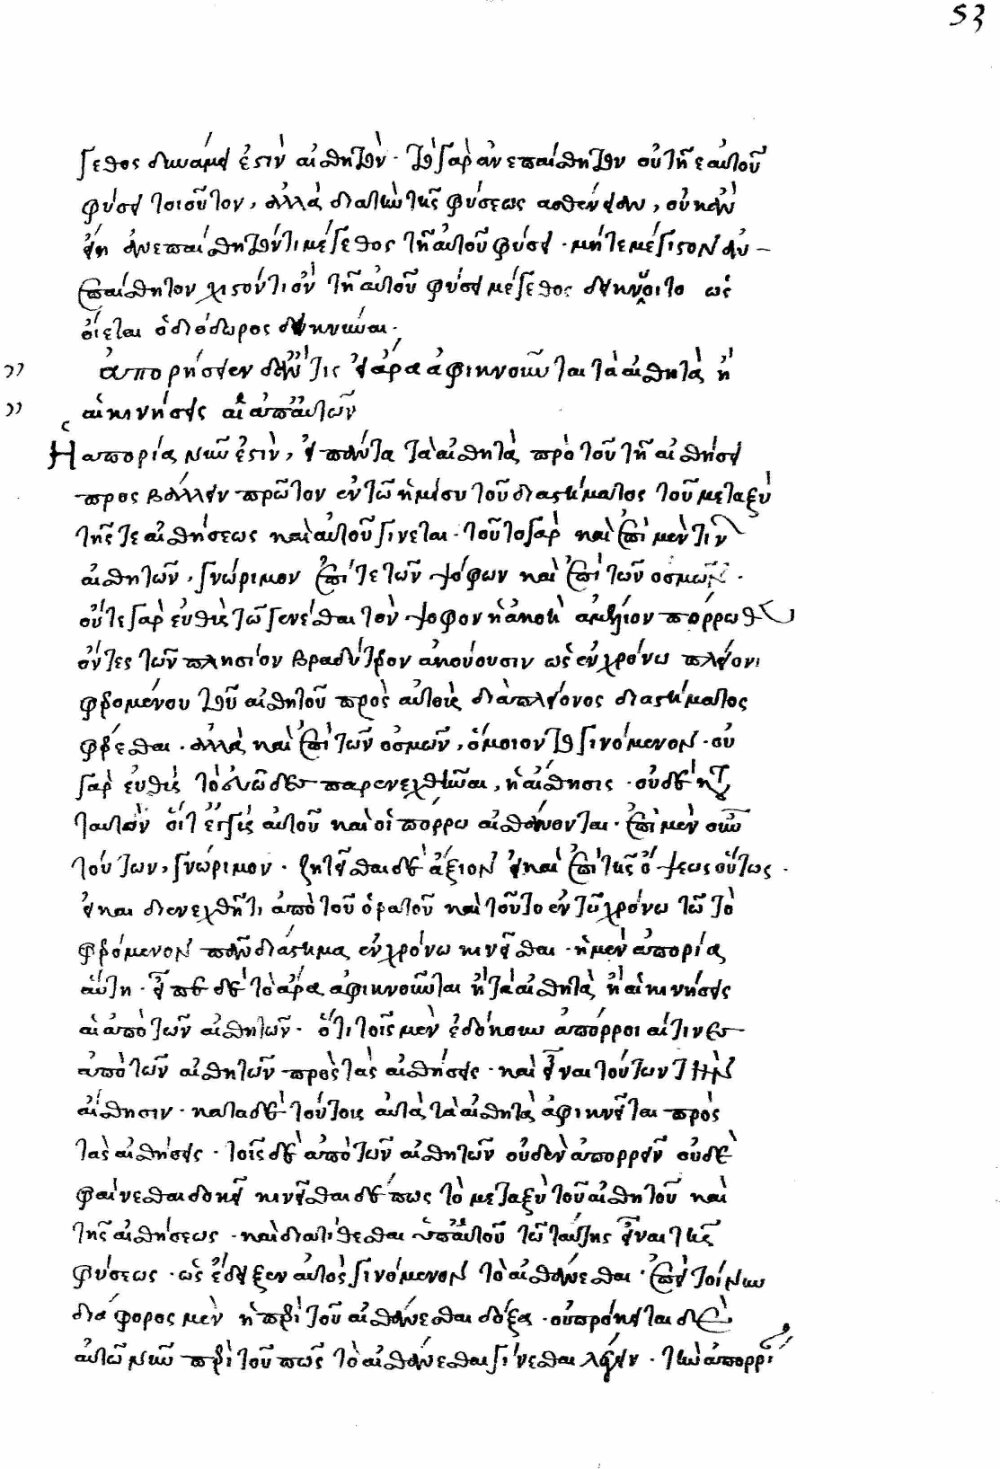 53
γεθος δυνάμει ἐστὶν αἰσθητόν· τὸ γὰρ ἀνεπαίσθητον οὐ τῇ ἑαυτοῦ
φύσει τοιοῦτον, ἀλλὰ διὰ τὴν τῆς φύσεως ἀσθένειαν, οὐκ ἂν
εἴη ἀνεπαίσθητόν τι μέγεθος τῇ αὑτοῦ φύσει· μήτε μέγιστον ἀν-
επαίσθητον γιγοντιον τῇ αὑτοῦ φύσει μέγεθος δεικνύοιτο ὡς
οἴεται ὁ διόδωρος δεικνύναι·
ἀπορήσειεν δ' ἄν τις εἰ ἆρα ἀφικνοῦνται τὰ αἰσθητὰ ἢ
αἱ κινήσεις αἱ ἀπ' αὐτῶν
Ἡ ἀπορία νῦν ἐστὶν, εἰ πάντα τὰ αἰσθητὰ πρὸ τοῦ τῇ αἰσθήσει
προσβάλλειν πρῶτον ἐν τῷ ἡμίσυ τοῦ διαστήματος τοῦ μεταξὺ
τῆς τε αἰσθήσεως καὶ αὐτοῦ γίνεται· τοῦτο γὰρ καὶ ἐπὶ μὲν τιν
αἰσθητῶν, γνώριμον ἐπί τε τῶν ψόφων καὶ ἐπὶ τῶν ὀσμῶν·
οὔτε γὰρ εὐθὺς τῷ γενέσθαι τὸν ψόφον ἡ ἀκοὴ πόρρωθεν
ὄντες τῶν πλησίον βραδύτερον ἀκούουσιν ὡς ἐν χρόνῳ πλείονι
φερομένου τοῦ αἰσθητοῦ πρὸς αὐτοὺς διὰ πλείονος διαστήματος
φέρεσθαι· ἀλλὰ καὶ ἐπὶ τῶν ὀσμῶν, ὅμοιον τὸ γινόμενον· οὐ
γὰρ εὐθὺς τὸ εὐῶδες παρενεχθῆναι, ἡ αἴσθησις· οὐδὲ κατ
ταυτὸν οἵ τ' ἐγγὺς αὐτοῦ καὶ οἱ πόρρω αἰσθάνονται· ἐπὶ μὲν οὖν
τούτων, γνώριμον· ζητεῖσθαι δὲ ἄξιον εἰ καὶ ἐπὶ τῆς ὄψεως οὕτως·
εἰ καὶ διενεχθῆ τι ἀπὸ τοῦ ὁρατοῦ καὶ τοῦτο ἐν τῷ χρόνῳ τῷ τὸ
φερόμενον πᾶν διάστημα ἐν χρόνῳ κινεῖσθαι· ἡ μὲν ἀπορία
αὕτη· εἶπε δὲ τὸ ἆρα ἀφικνοῦνται ἢ τὰ αἰσθητὰ ἢ αἱ κινήσεις
αἱ ἀπὸ τῶν αἰσθητῶν· ὅτι τοῖς μὲν ἐδόκουν ἀπόρροιαί τινες
ἀπὸ τῶν αἰσθητῶν πρὸς τὰς αἰσθήσεις· καὶ εἶναι τούτων τὴν
αἴσθησιν· κατὰ δὲ τούτοις αὐτὰ τὰ αἰσθητὰ ἀφικνεῖται πρὸς
τὰς αἰσθήσεις· τοῖς δὲ ἀπὸ τῶν αἰσθητῶν οὐδὲν ἀπορρεῖν οὐδὲ
φαίνεσθαι δοκεῖ κινεῖσθαι δέ πως τὸ μεταξὺ τοῦ αἰσθητοῦ καὶ
τῆς αἰσθήσεως· καὶ διατίθεσθαι ὑπ' αὐτοῦ τῷ ταύτης εἶναι τῆς
φύσεως· ὡς ἔδειξεν αὐτὸς γινόμενον τὸ αἰσθάνεσθαι· ἐπεὶ τοίνυν
διάφορος μὲν ἡ περὶ τοῦ αἰσθάνεσθαι δόξα· οὐ πρόκειται δὲ
αὐτῷ νῦν περὶ τοῦ πῶς τὸ αἰσθάνεσθαι γίνεσθαι λέγειν· τὴν ἀπορρί